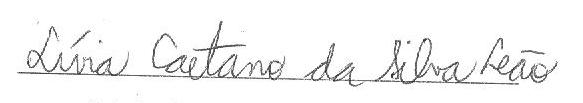 Lívia Caetano da Silva Leão